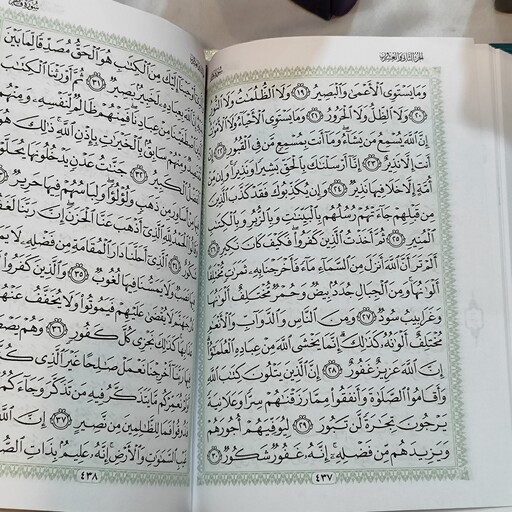 الجزء الثاني والعشرون
وَمَا يَسْتَوِي الْأَعْمَىٰ وَالْبَصِيرُ ١٩ وَلَا الظُّلُمَاتُ وَلَا النُّورُ
٢٠ وَلَا الظِّلُّ وَلَا الْحَرُورُ ٢١ وَمَا يَسْتَوِي الْأَحْيَاءُ وَلَا الْأَمْوَاتُ
إِنَّ اللَّهَ يُسْمِعُ مَن يَشَاءُ وَمَا أَنتَ بِمُسْمِعٍ مَّن فِي الْقُبُورِ ٢٢ إِنْ
أَنتَ إِلَّا نَذِيرٌ ٢٣ إِنَّا أَرْسَلْنَاكَ بِالْحَقِّ بَشِيرًا وَنَذِيرًا وَإِن مِّنْ
أُمَّةٍ إِلَّا خَلَا فِيهَا نَذِيرٌ ٢٤ وَإِن يُكَذِّبُوكَ فَقَدْ كَذَّبَ الَّذِينَ
مِن قَبْلِهِمْ جَاءَتْهُمْ رُسُلُهُم بِالْبَيِّنَاتِ وَبِالزُّبُرِ وَبِالْكِتَابِ
الْمُنِيرِ ٢٥ ثُمَّ أَخَذْتُ الَّذِينَ كَفَرُوا فَكَيْفَ كَانَ نَكِيرِ ٢٦
أَلَمْ تَرَ أَنَّ اللَّهَ أَنزَلَ مِنَ السَّمَاءِ مَاءً فَأَخْرَجْنَا بِهِ ثَمَرَاتٍ مُّخْتَلِفًا
أَلْوَانُهَا وَمِنَ الْجِبَالِ جُدَدٌ بِيضٌ وَحُمْرٌ مُّخْتَلِفٌ أَلْوَانُهَا
وَغَرَابِيبُ سُودٌ ٢٧ وَمِنَ النَّاسِ وَالدَّوَابِّ وَالْأَنْعَامِ
مُخْتَلِفٌ أَلْوَانُهُ كَذَٰلِكَ إِنَّمَا يَخْشَى اللَّهَ مِنْ عِبَادِهِ الْعُلَمَاءُ
إِنَّ اللَّهَ عَزِيزٌ غَفُورٌ ٢٨ إِنَّ الَّذِينَ يَتْلُونَ كِتَابَ اللَّهِ
وَأَقَامُوا الصَّلَاةَ وَأَنفَقُوا مِمَّا رَزَقْنَاهُمْ سِرًّا وَعَلَانِيَةً
يَرْجُونَ تِجَارَةً لَّن تَبُورَ ٢٩ لِيُوَفِّيَهُمْ أُجُورَهُمْ
وَيَزِيدَهُم مِّن فَضْلِهِ إِنَّهُ غَفُورٌ شَكُورٌ ٣٠
٤٣٧
أَوْحَيْنَا إِلَيْكَ مِنَ الْكِتَابِ هُوَ الْحَقُّ مُصَدِّقًا لِّمَا بَيْنَ
اللَّهَ بِعِبَادِهِ لَخَبِيرٌ بَصِيرٌ ٣١ ثُمَّ أَوْرَثْنَا الْكِتَابَ
اصْطَفَيْنَا مِنْ عِبَادِنَا فَمِنْهُمْ ظَالِمٌ لِّنَفْسِهِ وَمِنْهُم
وَمِنْهُمْ سَابِقٌ بِالْخَيْرَاتِ بِإِذْنِ اللَّهِ ذَٰلِكَ هُوَ
الْفَضْلُ الْكَبِيرُ ٣٢ جَنَّاتُ عَدْنٍ يَدْخُلُونَهَا يُحَلَّوْنَ
أَسَاوِرَ مِن ذَهَبٍ وَلُؤْلُؤًا وَلِبَاسُهُمْ فِيهَا حَرِيرٌ ٣٣
الْحَمْدُ لِلَّهِ الَّذِي أَذْهَبَ عَنَّا الْحَزَنَ إِنَّ رَبَّنَا لَغَفُورٌ
٣٤ الَّذِي أَحَلَّنَا دَارَ الْمُقَامَةِ مِن فَضْلِهِ لَا يَمَسُّنَا
نَصَبٌ وَلَا يَمَسُّنَا فِيهَا لُغُوبٌ ٣٥ وَالَّذِينَ كَفَرُوا
جَهَنَّمَ لَا يُقْضَىٰ عَلَيْهِمْ فَيَمُوتُوا وَلَا يُخَفَّفُ عَنْهُم
عَذَابِهَا كَذَٰلِكَ نَجْزِي كُلَّ كَفُورٍ ٣٦ وَهُمْ يَصْطَرِخُونَ
رَبَّنَا أَخْرِجْنَا نَعْمَلْ صَالِحًا غَيْرَ الَّذِي كُنَّا
نُعَمِّرْكُم مَّا يَتَذَكَّرُ فِيهِ مَن تَذَكَّرَ وَجَاءَكُمُ
فَذُوقُوا فَمَا لِلظَّالِمِينَ مِن نَّصِيرٍ ٣٧ إِنَّ اللَّهَ
السَّمَاوَاتِ وَالْأَرْضِ إِنَّهُ عَلِيمٌ بِذَاتِ الصُّدُورِ
٤٣٨